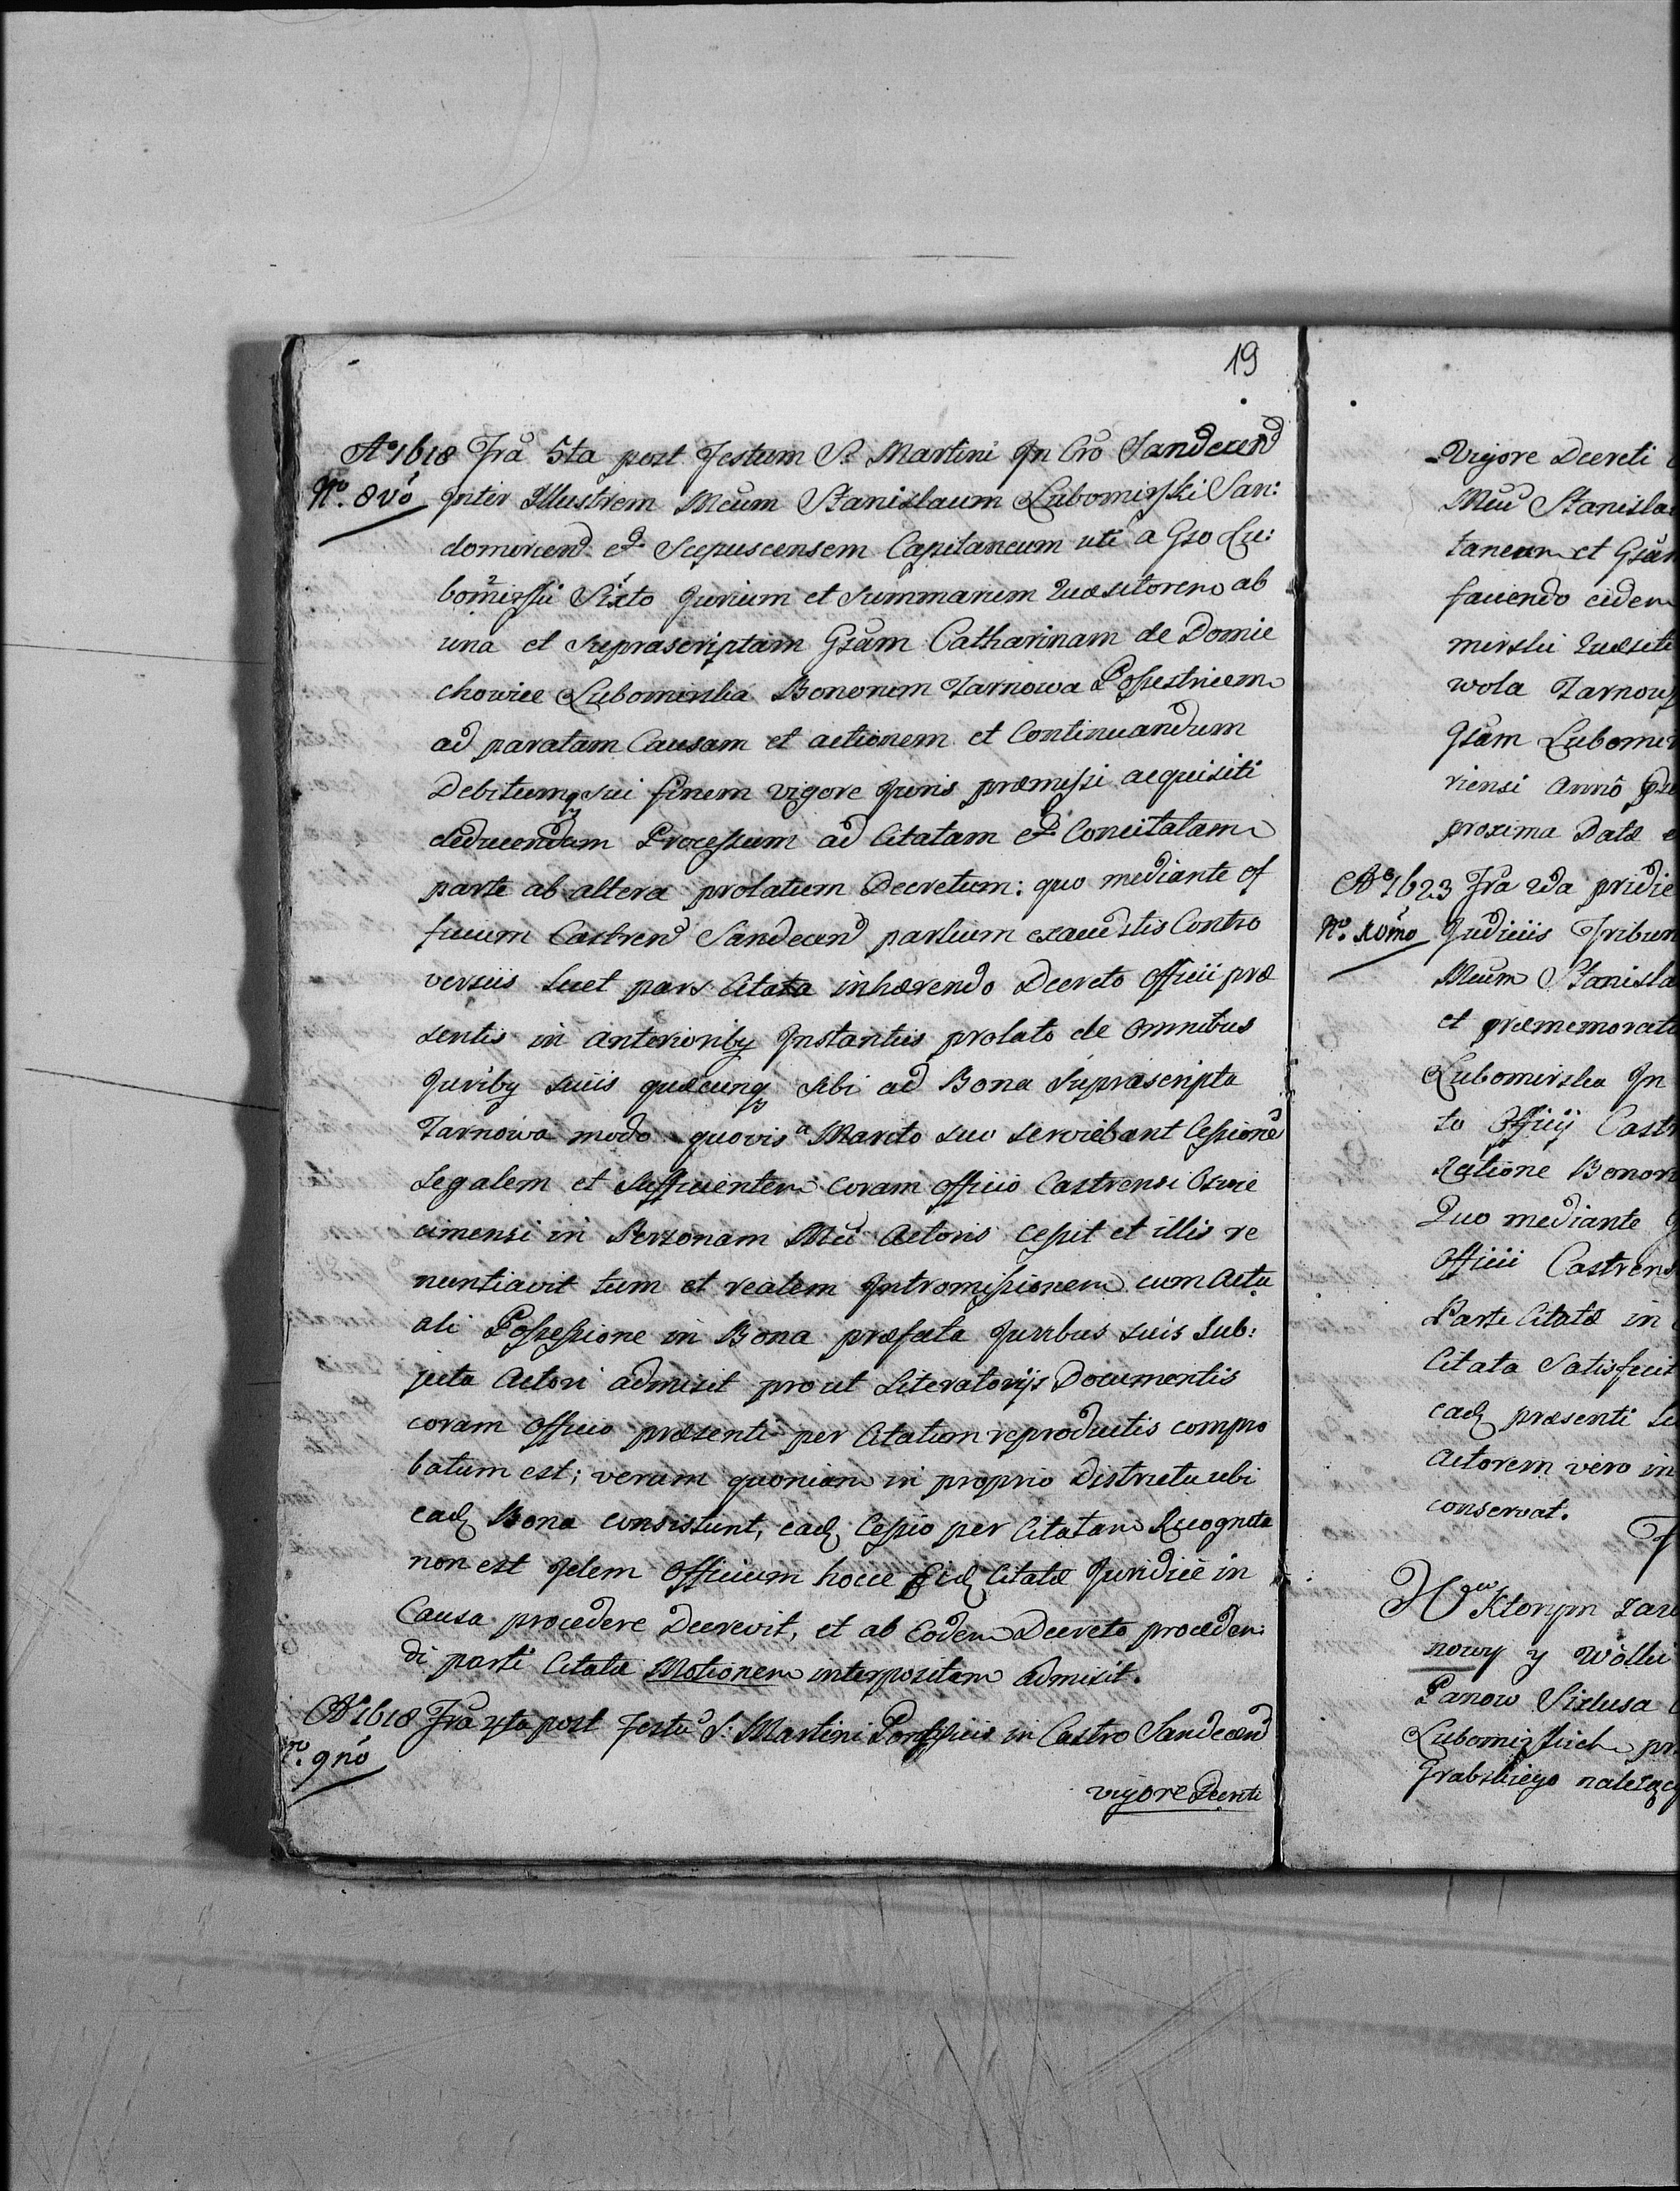 19
A<sup>o</sup> 1618 Fra 5ta post Festum S. Martini In Cro Sandecen
N<sup>ro</sup>. 8vo Inter Illustrem Mcum Stanislaum Lubomirski San:
domirien et Scepuscensem Capitaneum uti a Gso Lu:
bomirski Sixto Jurium et Summarum Quæsitorem ab
una et Suprascriptam Gsam Catharinam de Domie
chowice Lubomirska Bonorum Tarnowa Possestricem
ad paratam Causam et actionem et Continuandum
Debitumq sui finem vigore Juris præmissi acquisiti
deducendum Processum ad Citatam et Concitatam
parte ab altera prolatum Decretum: quo mediante of
ficium Castren Sandecen partium exauditis Contro
versiis Licet pars Citata inhærendo Decreto Officii præ
sentis in anterioriby Instantiis prolato de omnibus
Juriby suiis quæcunq sibi ad Bona Suprascripta
Tarnowa modo quovis a Marito suo serviebant Cessione
Legalem et Sufficientem coram officio Castrensi Oswie
cimensi in Personam Mci Actoris cessit et illis re
nuntiavit tum et realem Intromissionem cum Actu
ali Possessione in Bona præfata Juribus suis Sub:
jecta Actori admisit prout Literatorijs Documentis
coram Officio præsenti per Citatum reproductis compro
batum est; verum quoniam in proprio Districtu ubi
eadq Bona consistunt, eadq Cessio per Citatam Recognita
non est Idem Officium hocce Eidq Citatæ Juridicè in
Causa procedere Decrevit, et ab Eodem Decreto proceden:
di parti Citatæ Motionem interpositam admisit.
A<sup>o</sup> 1618 Fra 5ta post Festu S: Martini Pontificis in Castro Sandecen
N<sup>ro</sup>. 9no
vigore Decreti
Vigore Decreti
Mcu Stanisla
taneum et Gsam
faciendo eidem
mirski Quæsito
wola Tarnows
Gsam Lubomir
riensi Anno
proxima Datæ
A<sup>o</sup> 1623 Fra 2da pridie
N<sup>o</sup>. 10mo Judiciis Tribun
Mcum Stanisla
et præmemorat
Lubomirska In
to Officij Castr
Ratione Bonor
Quo mediante
Officii Castrens
Parte Citatæ in
Citata Satisfecit
eadq præsenti
Actorem vero in
conservat.
W Ktorym
nowy y Wolki
Panow Sixtusa
Lubomirskich
Grabskiego należąc